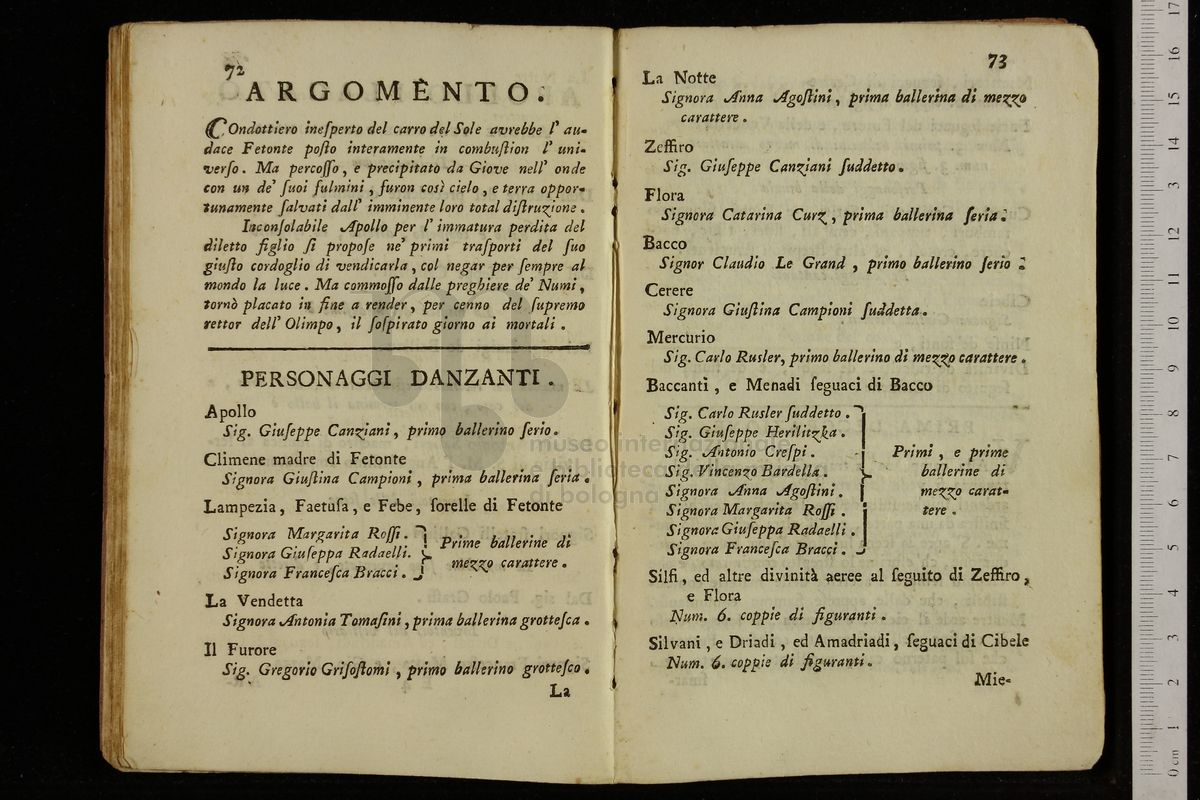 72
ARGOMÈNTO.
COndottiero ineſperto del carro del Sole avrebbe l' au-
dace Fetonte poſto interamente in combuſtion l' uni-
verſo. Ma percoſſo, e precipitato da Giove nell' onde
con un de' ſuoi fulmini, furon così cielo, e terra oppor-
tunamente ſalvati dall' imminente loro total diſtruzione.
Inconſolabile Apollo per l' immatura perdita del
diletto figlio ſi propoſe ne' primi traſporti del ſuo
giuſto cordoglio di vendicarla, col negar per ſempre al
mondo la luce. Ma commoſſo dalle preghiere de' Numi,
tornò placato in fine a render, per cenno del ſupremo
rettor dell' Olimpo, il ſoſpirato giorno ai mortali.
PERSONAGGI DANZANTI.
Apollo
Sig. Giuſeppe Canziani, primo ballerino ſerio.
Climene madre di Fetonte
Signora Giuſtina Campioni, prima ballerina ſeria.
Lampezia, Faetuſa, e Febe, ſorelle di Fetonte
Signora Margarita Roſſi.
Signora Giuſeppa Radaelli.
Signora Franceſca Bracci.
Prime ballerine di
mezzo carattere.
La Vendetta
Signora Antonia Tomaſini, prima ballerina grotteſca.
Il Furore
Sig. Gregorio Griſoſtomi, primo ballerino grotteſco.
La
73
La Notte
Signora Anna Agoſtini, prima ballerina di mezzo
carattere.
Zeffiro
Sig. Giuſeppe Canziani ſuddetto.
Flora
Signora Catarina Curz, prima ballerina ſeria.
Bacco
Signor Claudio Le Grand, primo ballerino ſerio.
Cerere
Signora Giuſtina Campioni ſuddetta.
Mercurio
Sig. Carlo Rusler, primo ballerino di mezzo carattere.
Baccanti, e Menadi ſeguaci di Bacco
Sig. Carlo Rusler ſuddetto.
Sig. Giuſeppe Herilitzka.
Sig. Antonio Creſpi.
Sig. Vincenzo Bardella.
Signora Anna Agoſtini.
Signora Margarita Roſſi.
Signora Giuſeppa Radaelli.
Signora Franceſca Bracci.
Primi, e prime
ballerine di
mezzo carat-
tere.
Silfi, ed altre divinità aeree al ſeguito di Zeffiro,
e Flora
Num. 6. coppie di figuranti.
Silvani, e Driadi, ed Amadriadi, ſeguaci di Cibele
Num. 6. coppie di figuranti.
Mie-
museo internazionale
e biblioteca della
di bologna
0 cm 1 2 3 4 5 6 7 8 9 10 11 12 13 14 15 16 17